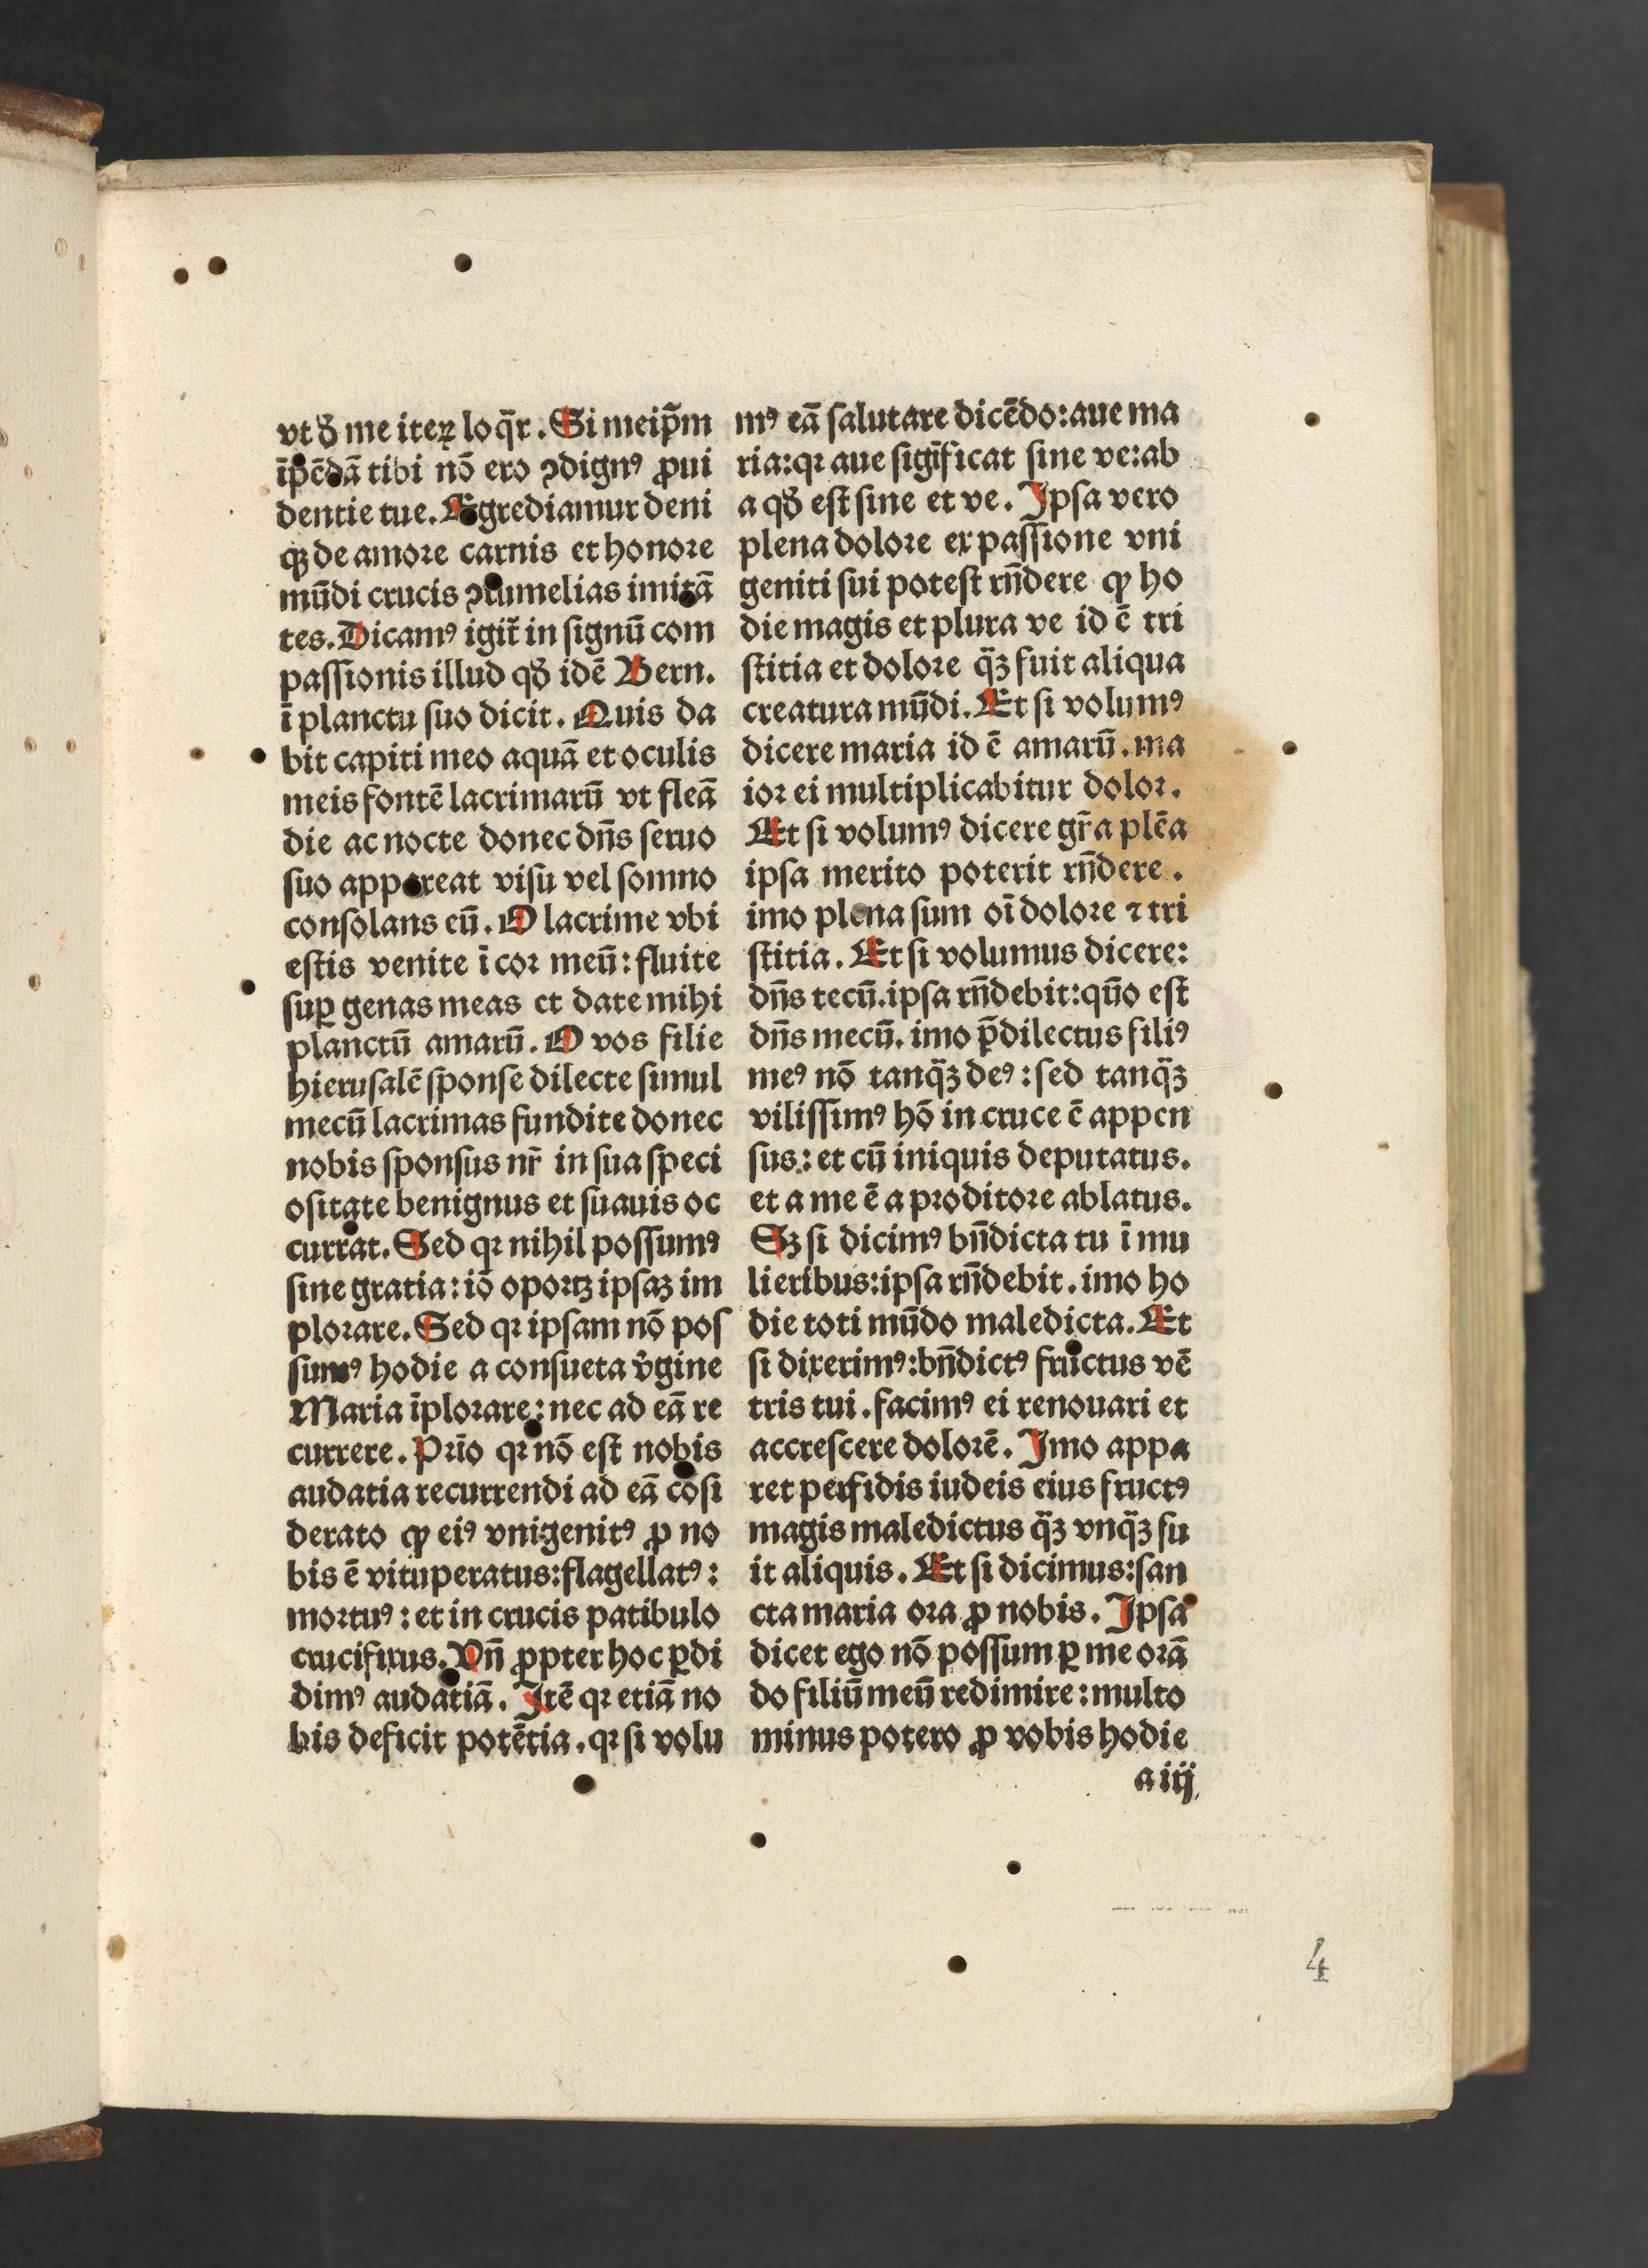 vt ꝺ̄ me iteꝝ loq̄r. Si meip̄m
īpēdā tibi nō ero ꝯdignꝰ ꝓui
dentie tue. Egrediamur deni
qꝫ de amore carnis et honore
mūdi crucis ꝯtumelias imitā
tes. Dicamꝰ igit̄ in signū com
passionis illud qḋ idē Bern.
ī planctu suo dicit. Quis da
bit capiti meo aquā et oculis
meis fontē lacrimarū vt fleā
die ac nocte donec dn̄s seruo
suo appareat visu vel somno
consolans eū. O lacrime vbi
estis venite ī cor meū: fluite
suꝑ genas meas et date mihi
planctū amarū. O vos filie
hierusalē sponse dilecte simul
mecū lacrimas fundite donec
nobis sponsus nr̄ in sua speci
ositate benignus et suauis oc
currat. Sed qꝛ nihil possumꝰ
sine gratia: iō oportꝫ ipsaꝫ im
plorare. Sed qꝛ ipsam nō pos
sumꝰ hodie a consueta v̇gine
Maria īplorare: nec ad eā re
currere. Prīo qꝛ nō est nobis
audatia recurrendi ad eā cōsi
derato ꝙ eiꝰ vnigenitꝰ ꝓ no
bis ē vituperatus: flagellatꝰ:
mortuꝰ: et in crucis patibulo
crucifixus. Vn̄ ꝓpter hoc ꝑdi
dimꝰ audatiā. Itē qꝛ etiā no
bis deficit potētia. qꝛ si volu
mꝰ eā salutare dicēdo: aue ma
ria: qꝛ aue sigīficat sine ve: ab
a qḋ est sine et ve. Ipsa vero
plena dolore ex passione vni
geniti sui potest rn̄dere ꝙ ho
die magis et plura ve id ē tri
stitia et dolore q̄ꝫ fuit aliqua
creatura mūdi. Et si volumꝰ
dicere maria id ē amarū. ma
ior ei multiplicabitur dolor.
Et si volumꝰ dicere gr̄a plēa
ipsa merito poterit rn̄dere.
imo plena sum oī dolore ⁊ tri
stitia. Et si volumus dicere:
dn̄s tecū. ipsa rn̄debit: quō est
dn̄s mecū. imo p̄dilectus filiꝰ
meꝰ nō tanq̄ꝫ deꝰ: sed tanq̄ꝫ
vilissimꝰ hō in cruce ē appen
sus: et cū iniquis deputatus.
et a me ē a proditore ablatus.
Sꝫ si dicimꝰ bn̄dicta tu ī mu
lieribus: ipsa rn̄debit. imo ho
die toti mūdo maledicta. Et
si dixerimꝰ: bn̄dictꝰ fructus vē
tris tui. facimꝰ ei renouari et
accrescere dolorē. Imo appa
ret perfidis iudeis eius fructꝰ
magis maledictus q̄ꝫ vnq̄ꝫ fu
it aliquis. Et si dicimus: san
cta maria ora ꝓ nobis. Ipsa
dicet ego nō possum ꝑ me orā
do filiū meū redimire: multo
minus potero ꝓ vobis hodie
a iij
4